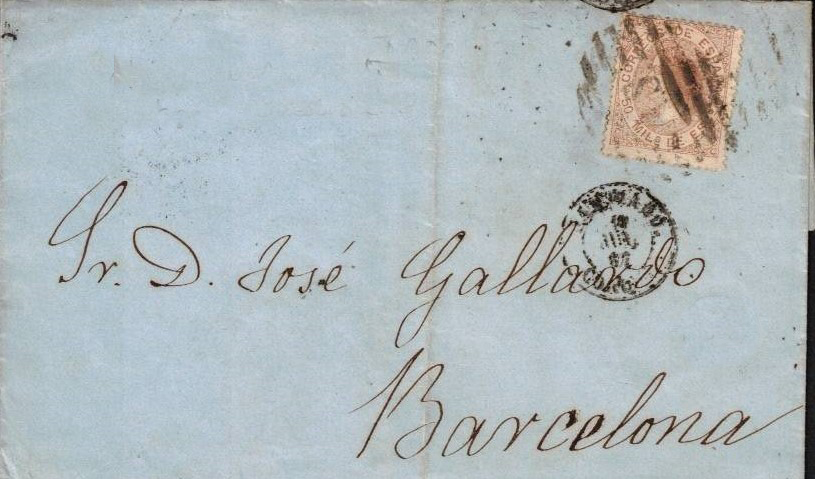 CORREOS DE ESPAÑA
50 MILs DE E
Sr. D. José Gallardo
Barcelona